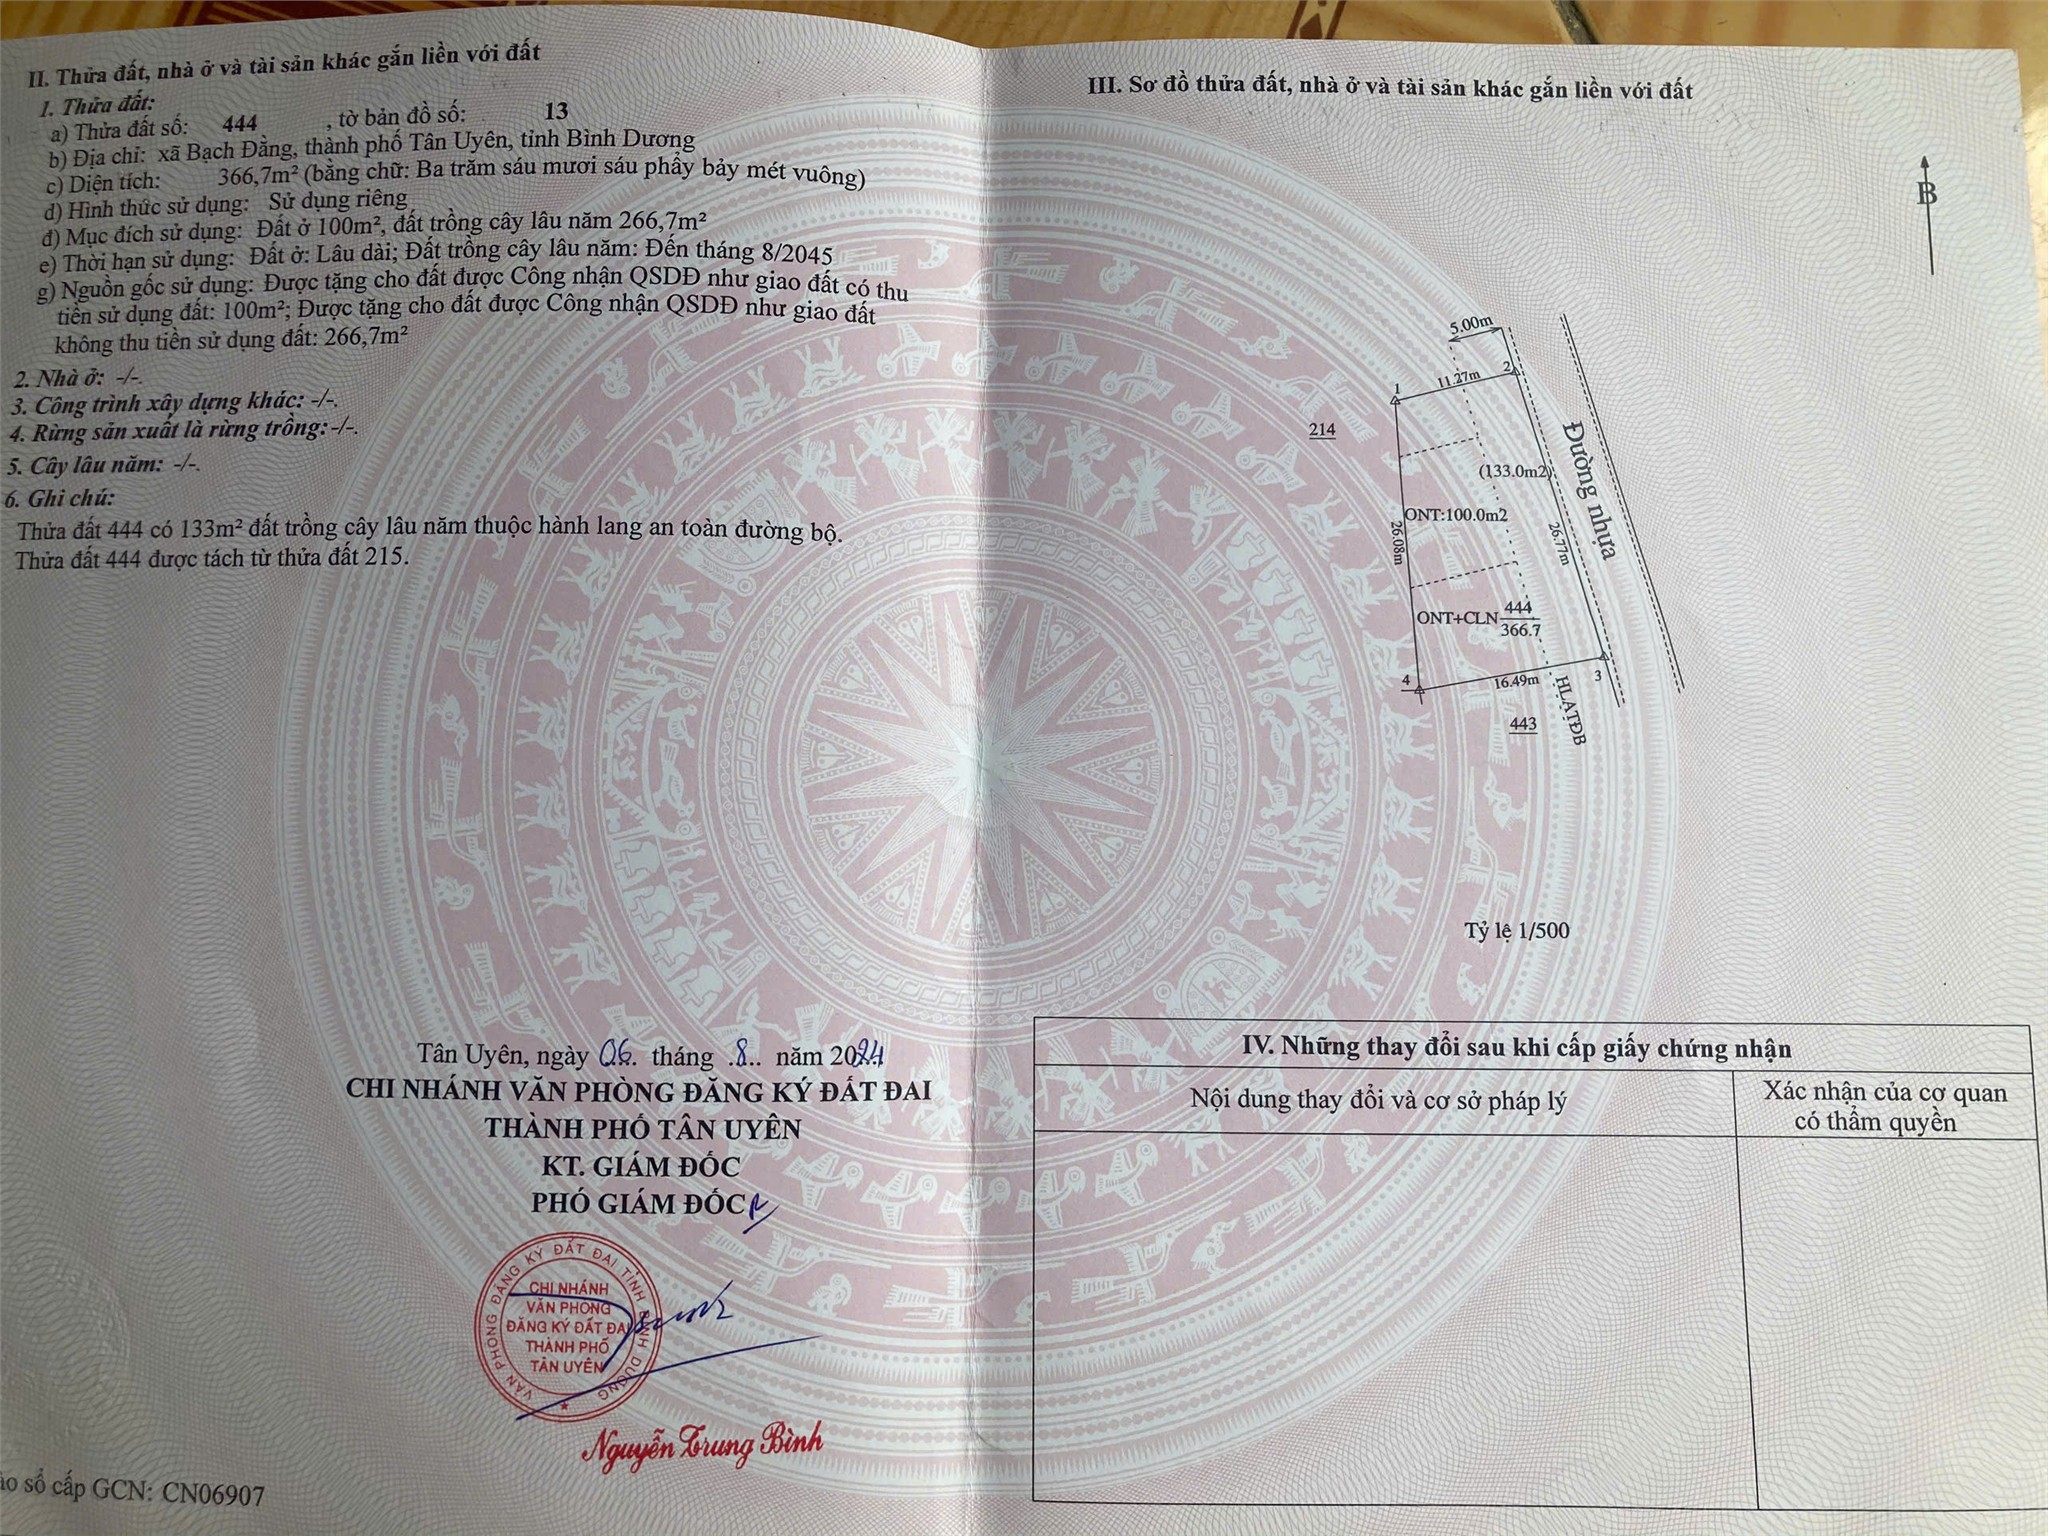 II. Thửa đất, nhà ở và tài sản khác gắn liền với đất
1. Thửa đất:
a) Thửa đất số: 444 , tờ bản đồ số: 13
b) Địa chỉ: xã Bạch Đằng, thành phố Tân Uyên, tỉnh Bình Dương
c) Diện tích: 366,7m² (bằng chữ: Ba trăm sáu mươi sáu phẩy bảy mét vuông)
d) Hình thức sử dụng: Sử dụng riêng
đ) Mục đích sử dụng: Đất ở 100m², đất trồng cây lâu năm 266,7m²
e) Thời hạn sử dụng: Đất ở: Lâu dài; Đất trồng cây lâu năm: Đến tháng 8/2045
g) Nguồn gốc sử dụng: Được tặng cho đất được Công nhận QSDĐ như giao đất có thu
tiền sử dụng đất: 100m²; Được tặng cho đất được Công nhận QSDĐ như giao đất
không thu tiền sử dụng đất: 266,7m²
2. Nhà ở: -/-.
3. Công trình xây dựng khác: -/-.
4. Rừng sản xuất là rừng trồng: -/-.
5. Cây lâu năm: -/-.
6. Ghi chú:
Thửa đất 444 có 133m² đất trồng cây lâu năm thuộc hành lang an toàn đường bộ.
Thửa đất 444 được tách từ thửa đất 215.
Tân Uyên, ngày 06. tháng .8.. năm 2024
CHI NHÁNH VĂN PHÒNG ĐĂNG KÝ ĐẤT ĐAI
THÀNH PHỐ TÂN UYÊN
KT. GIÁM ĐỐC
PHÓ GIÁM ĐỐC
VĂN PHÒNG ĐĂNG KÝ ĐẤT ĐAI TỈNH BÌNH DƯƠNG
CHI NHÁNH
VĂN PHÒNG
ĐĂNG KÝ ĐẤT ĐAI
THÀNH PHỐ
TÂN UYÊN
Nguyễn Trung Bình
ào sổ cấp GCN: CN06907
III. Sơ đồ thửa đất, nhà ở và tài sản khác gắn liền với đất
B
5.00m
1
11.27m
2
214
(133.0m2)
Đường nhựa
ONT:100.0m2
26.08m
26.77m
ONT+CLN 444
366.7
4
16.49m
3
HLATĐB
443
Tỷ lệ 1/500
IV. Những thay đổi sau khi cấp giấy chứng nhận
Nội dung thay đổi và cơ sở pháp lý
Xác nhận của cơ quan
có thẩm quyền